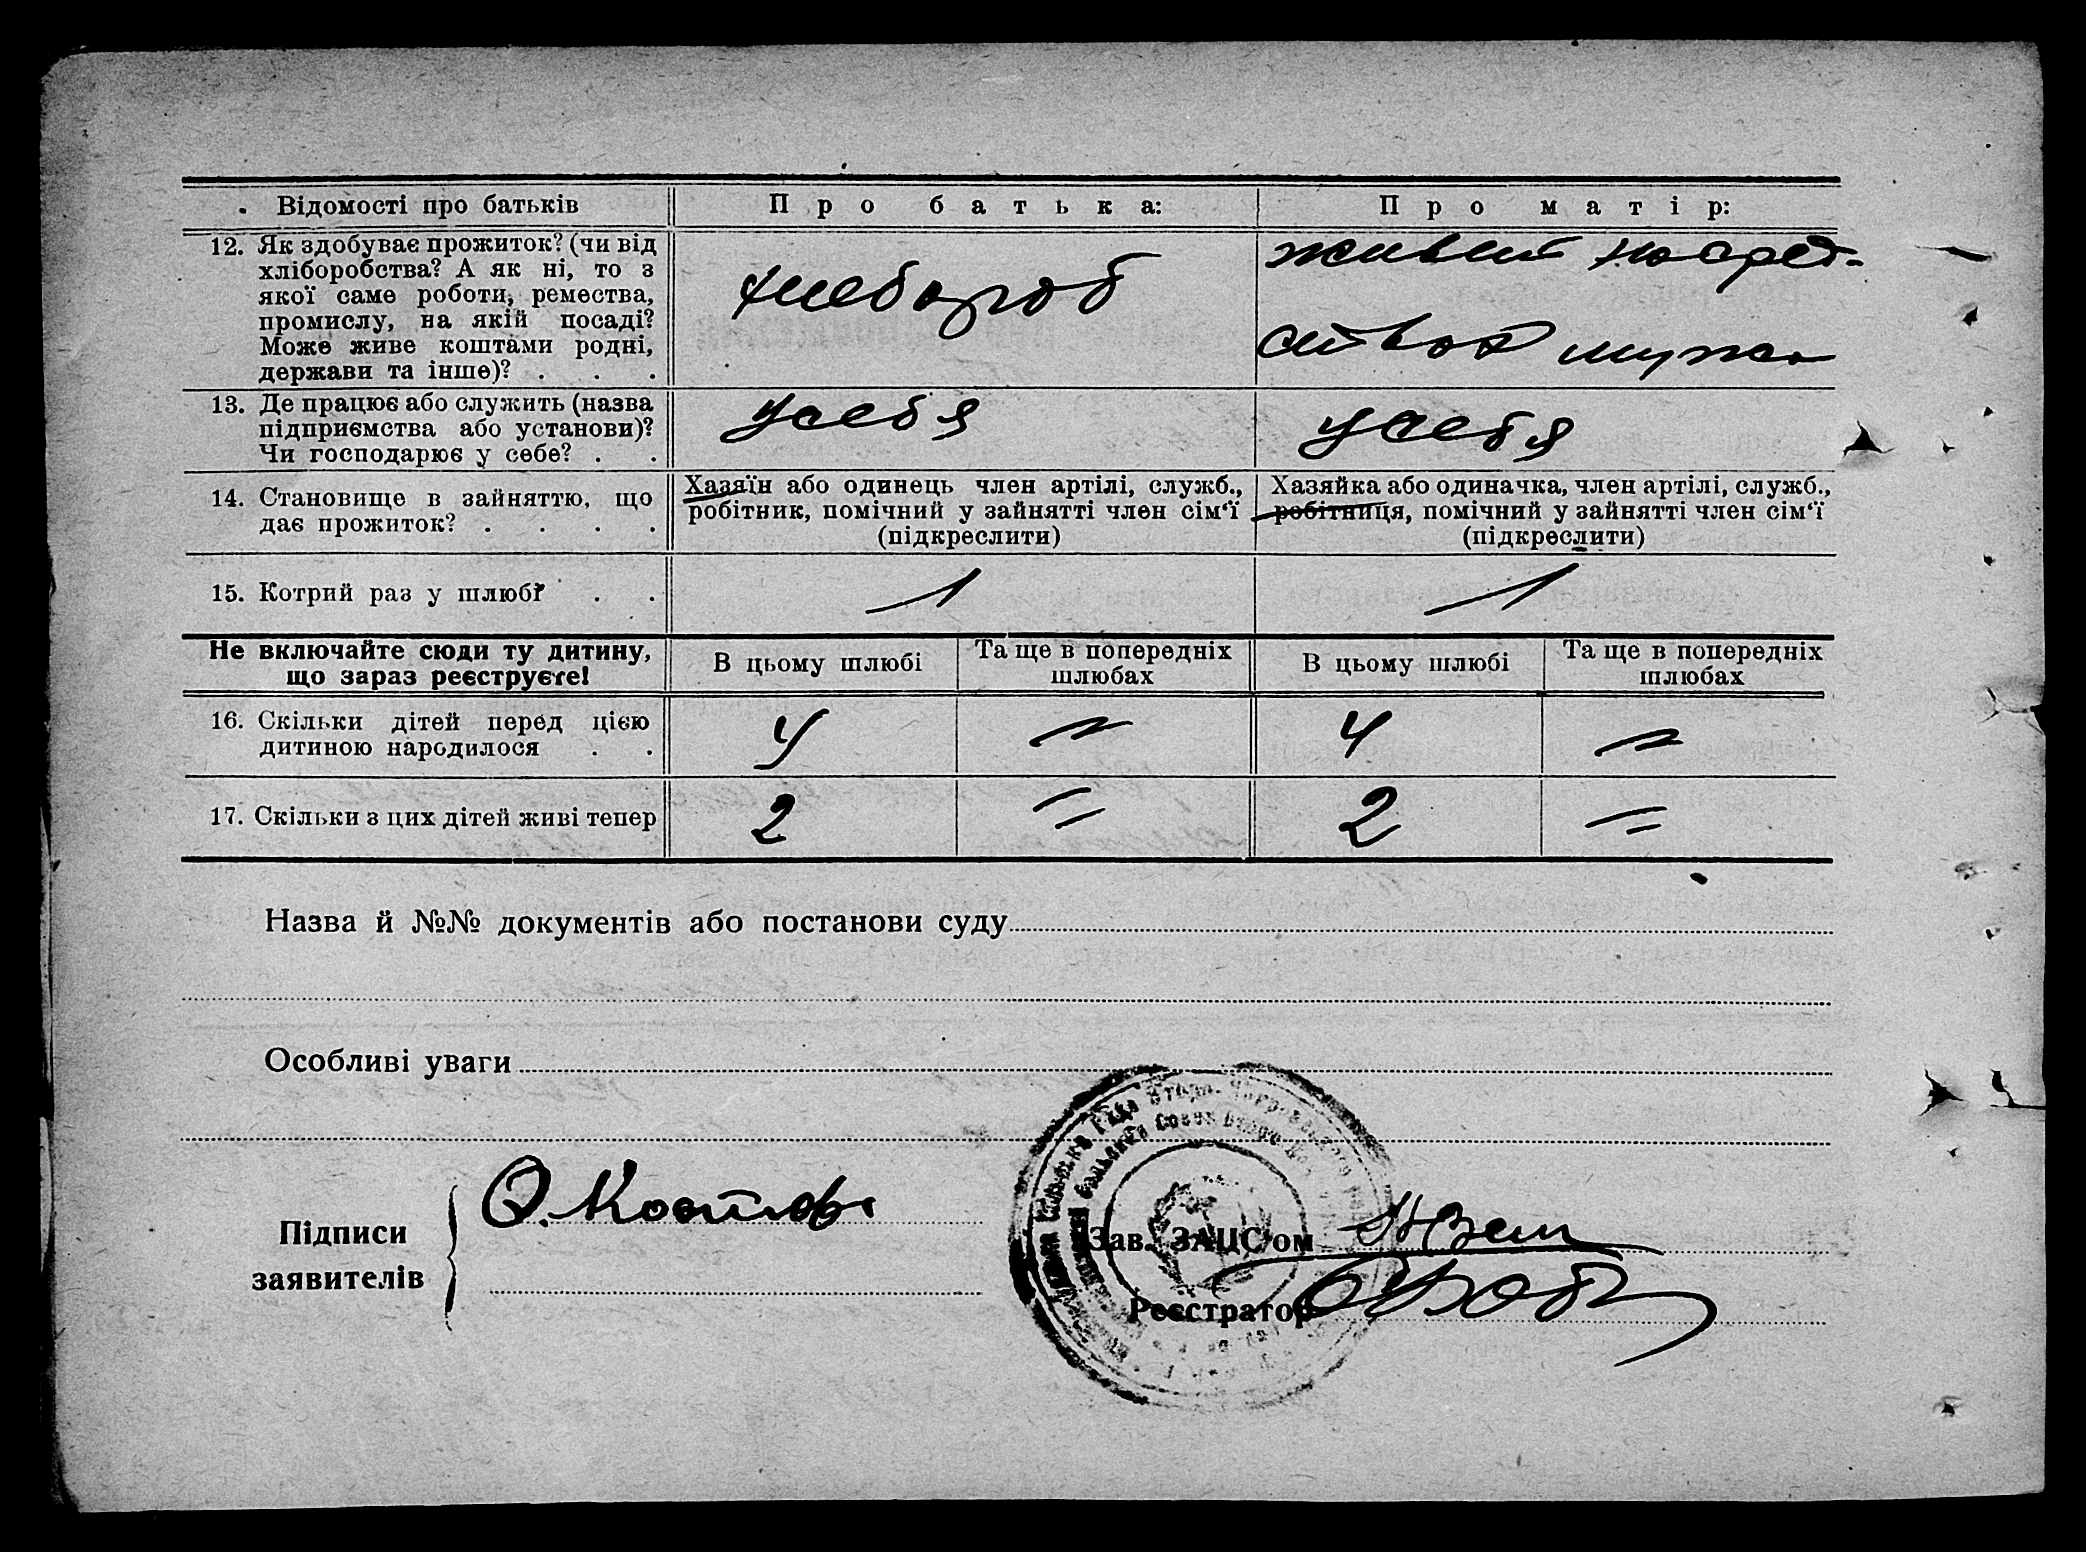 Відомості про батьків
Про батька:
Про матір:
12. Як здобуває прожиток? (чи від
хліборобства? А як ні, то з
якої саме роботи, ремества,
промислу, на якій посаді?
Може живе коштами родні,
держави та інше)? . . .
хлебороб
живет на сред-
ства мужа
13. Де працює або служить (назва
підприємства або установи)?
Чи господарює у себе? . .
у себя
у себя
14. Становище в зайняттю, що
дає прожиток? . . . .
Хазяїн або одинець член артілі, служб.,
робітник, помічний у зайнятті член сім‘ї
(підкреслити)
Хазяйка або одиначка, член артілі, служб.,
робітниця, помічний у зайнятті член сім‘ї
(підкреслити)
15. Котрий раз у шлюбі . .
1
1
Не включайте сюди ту дитину,
що зараз реєструєте!
В цьому шлюбі
Та ще в попередніх
шлюбах
В цьому шлюбі
Та ще в попередніх
шлюбах
16. Скільки дітей перед цією
дитиною народилося . .
4
4
17. Скільки з цих дітей живі тепер
2
2
Назва й №№ документів або постанови суду
Особливі уваги
Підписи
заявителів
Зав. ЗАЦС‘ом
Реєстратор